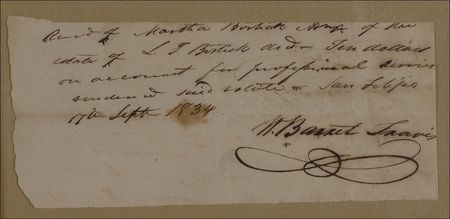 Rec'd of Martha Bostick Admx of the
estate of L T Bostick decd Ten dollars
on account for professional services
rendered said estate San Felipe
17th Septr 1834
W. Barret Travis